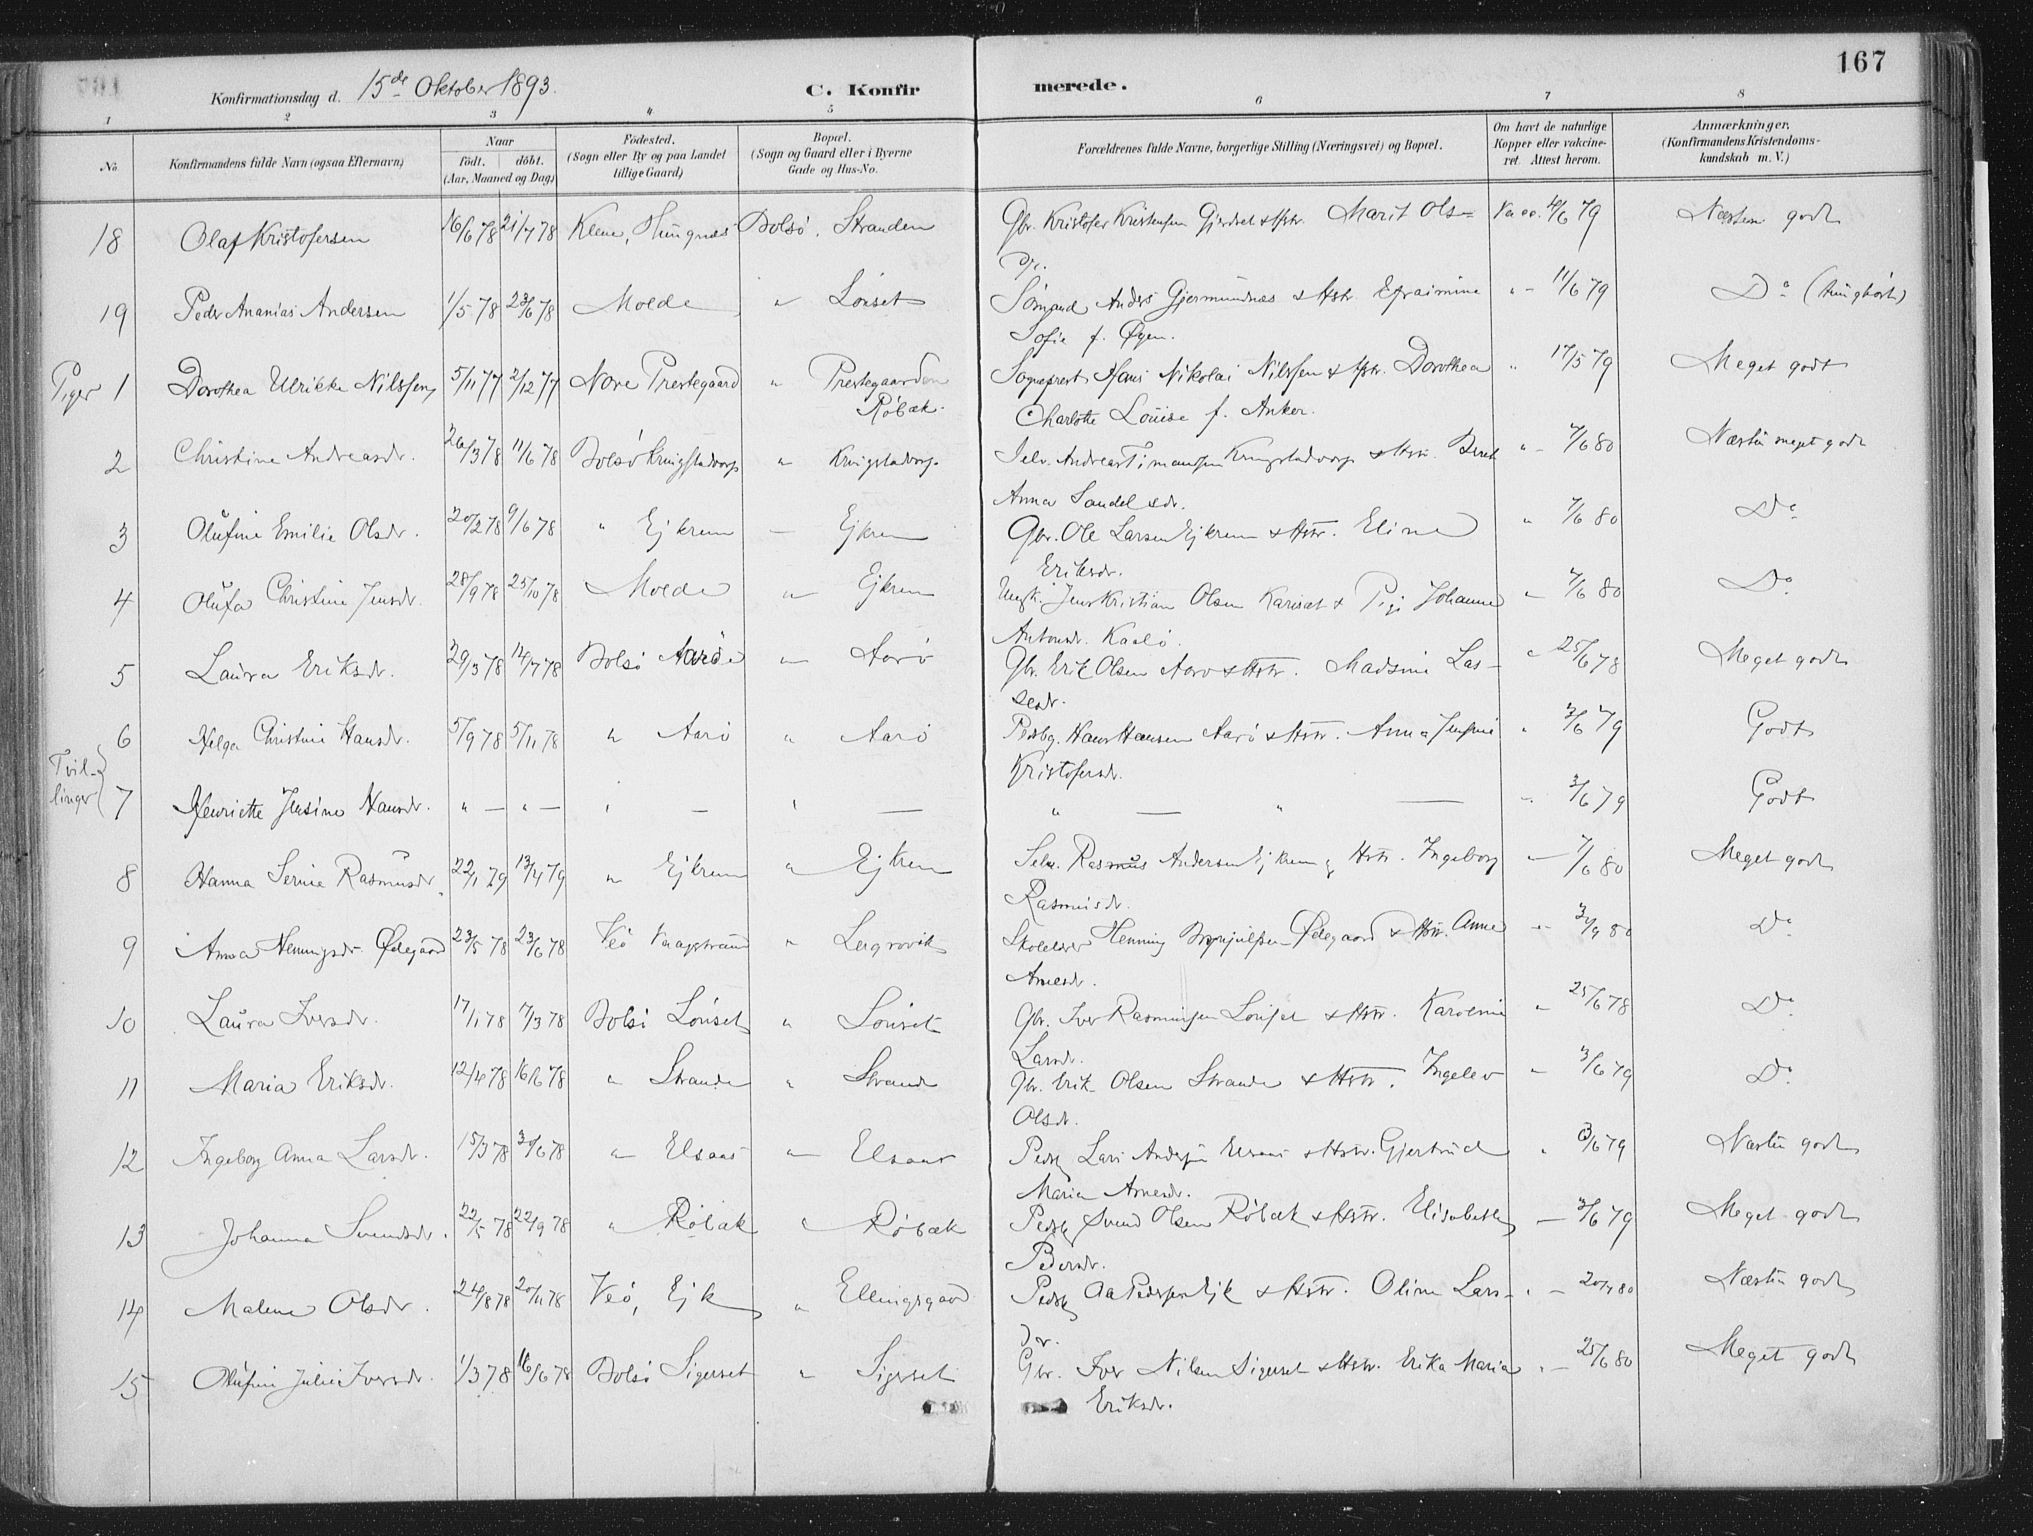 167
Konfirmationsdag d. 15de Oktober 1893.
C. Konfirmerede.
1 2 3 4 5 6 7 8
No.
Konfirmandens fulde Navn (ogsaa Efternavn)
Naar
født. døbt.
(Aar, Maaned og Dag)
Fødested.
(Sogn eller By og paa Landet
tillige Gaard)
Bopæl.
(Sogn og Gaard eller i Byerne
Gade og Hus-No.
Forældrenes fulde Navne, borgerlige Stilling (Næringsvei) og Bopæl.
Om havt de naturlige
Kopper eller vakcine-
ret. Attest herom.
Anmærkninger.
(Konfirmandens Kristendoms-
kundskab m. V.)
18 Olaf Kristofersen 16/6 78 21/7 78 Bolsø. Stranden Gbr. Kristofer Kristensen Gjerdset & Hstr. Marit Ols- 4/6 79 Næsten godt
19 Peder Ananias Andersen 1/5 78 23/6 78 Molde " Lønset Sømand Anders Gjermundnæs & Hstr Efraimine " - 11/6 79 Do
Sofie f. Øyen.
Piger 1 Dorothea Ulrikke Nilssen 5/11 77 2/12 77 Nore Prestegaard " Prestegaarden Sogneprest Hans Nikolai Nilssen & Hstr. Dorothea " 17/5 79 Meget godt
Røbæk.
Charlotte Louise f. Anker.
2 Christine Andreasdr. 26/3 78 11/6 78 Bolsø Kringstadvorp " Kringstadvorp Selv. Andreas Timansen Kringstadvorp & Hstr. Berit " - 7/6 80 Næsten meget godt
Anna Sandelsdr.
3 Olufine Emilie Olsdr. 20/2 78 9/6 78 " Ejkrem — Ejkrem Gbr. Ole Larsen Ejkrem & Hstr. Eline " 7/6 80 Do
Eriksdr.
4 Olufa Christine Jensdr. 28/9 78 25/10 78 Molde " Ejkrem Ungk. Jens Kristian Olsen & Pige Johanne " - 7/6 80 Do
Antonsdr.
5 Laura Eriksdr. 29/3 78 14/7 78 Bolsø Aarø " Aarø Gbr. Erik Olsen Aarø & Hstr. Madsine Las- " 25/6 78 Meget godt
sedr.
6 Helga Christine Hansdr. 5/9 78 5/11 78 " Aarø " Aarø Pladsbg. Hans Hansen Aarø & Hstr. Anna Jensine " 3/6 79 Godt
Tvil-
linger
Kristofersdr.
7 Henriette Jensine Hansdr. " — " — " — " — " — " — " 3/6 79 Godt
8 Hanna Serine Rasmusdr. 22/1 79 13/4 79 " Ejkrem " Ejkrem Selv. Rasmus Andersen Ejkrem & Hstr. Ingeborg — 7/6 80 Meget godt
Rasmusdr.
9 Anna Henningsdr. Ødegaard 23/5 78 23/6 78 Veø " Lergrovik Skolelærer Henning Ødegaard & Hstr. Anne Do
Arnesdr.
10 Laura Iversdr. 17/1 78 7/3 78 Bolsø Lønset " Lønset Gbr. Iver Rasmussen Lønset & Hstr. Karoline " 25/6 78 Do
Larsdr.
11 Maria Eriksdr. 12/4 78 16/6 78 " Strande " Strande Gbr. Erik Olsen Strande & Hstr. Ingelev " 3/6 79 Do
Olsdr.
12 Ingeborg Anna Larsdr. 15/3 78 30/6 78 " Elsaas " Elsaas Lars Andersen Elsaas & Hstr. Gjertrud " 3/6 79 Næsten godt
Maria Arnesdr.
13 Johanna Svendsdr. 22/5 78 22/9 78 " Røbæk " Røbæk Svend Olsen Røbæk & Hstr. Elisabeth — 3/6 79 Meget godt
Pedersdr.
14 Malene Olsdr. 24/8 78 20/11 78 Veø, Ejk " Ellingsgaard Pedersen Ejk & Hstr. Oline Lars- " - 20/7 80 Næsten godt
dr.
15 Olufine Julie Iversdr. 1/3 78 16/6 78 Bolsø Sigerset " Sigerset Gbr. Iver Nilsen Sigerset & Hstr. Erika Maria " - 25/6 80 Meget godt
Eriksdr.